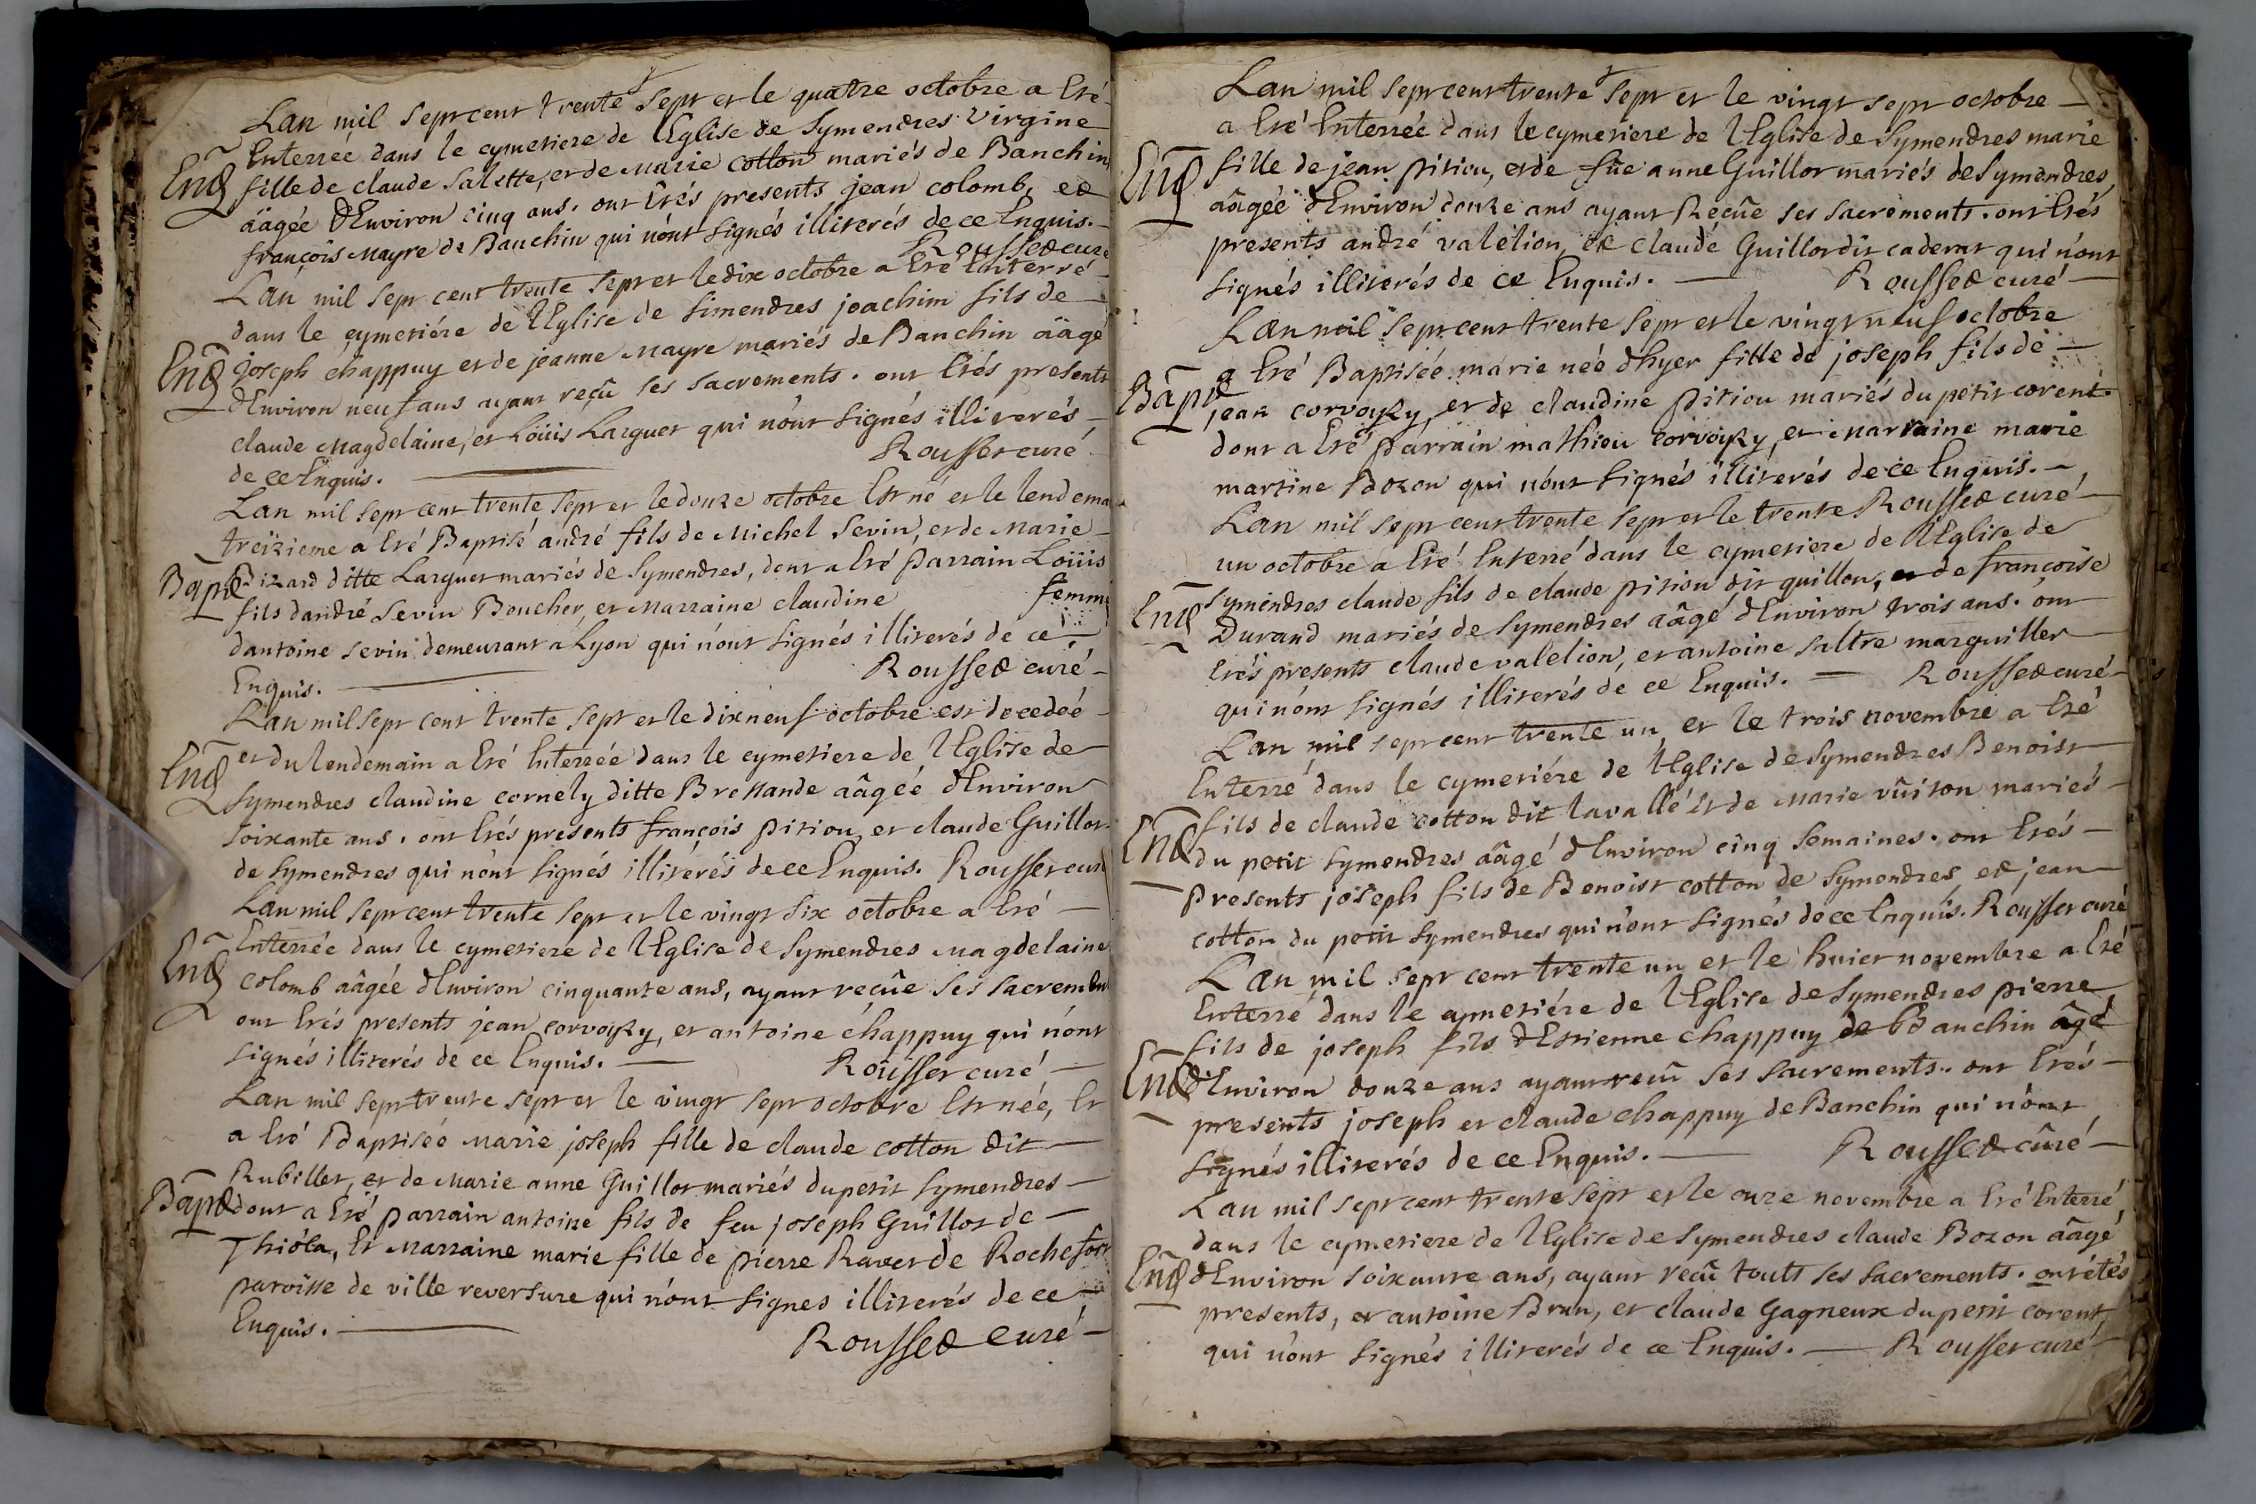 Lan mil sept cent trente sept et le quatre octobre a Eté
Enterrée dans le cymetiere de l'Eglise de Symendres Virgine
Ent fille de claude Salette, et de Marie cotton mariés de Banchin
äagée d'Environ cinq ans. ont Etés presents jean colomb, et
françois Mayre de Banchin qui n'ont signés illiterés de ce Enquis.
Rousset curé
Lan mil sept cent trente sept et le dix octobre a Eté Enterré
dans le cymetiére de l'Eglise de Simendres joachim fils de
Ent joseph chappuy et de jeanne Mayre mariés de Banchin äagé
d'Environ neuf ans ayant reçû ses sacrements. ont Etés presents
claude Magdelaine, et Loüis Larguet qui n'ont signés illiterés
de ce Enquis. Rousset curé
Lan mil sept cent trente sept et le douze octobre Est né et le lendema
treizieme a Eté Baptisé andré fils de Michel Sevin, et de Marie
Bapt Dizard ditte Larguet mariés de Symendres, dont a Eté Parrain Loüis
fils dandré Sevin Boucher, et Marraine claudine femme
dantoine sevin demeurant a Lyon qui n'ont signés illiterés de ce
Enquis. Rousset curé
Lan mil sept cent trente sept et le dixneuf octobre est decedéé
Ent et du lendemain a Eté Enterrée dans le cymetiere de l'Eglise de
Symendres claudine cornely ditte Bressande aâgéé d'Environ
soixante ans. ont Etés presents françois Pitiou, et claude Guillot
de Symendres qui n'ont signés illiterés de ce Enquis. Rousset curé
Lan mil sept cent trente sept et le vingt six octobre a Eté
Ent Enterrée dans le cymetiere de l'Eglise de Symendres Magdelaine
colomb aâgée d'Environ cinquante ans, ayant reçûe ses sacrements
ont Etés presents jean corvoyzy, et antoine chappuy qui n'ont
signés illiterés de ce Enquis. Rousset curé
Lan mil sept trente sept et le vingt sept octobre Est née, Et
a Eté Baptisée Marie joseph fille de claude cotton dit
Rubillet, et de Marie anne Guillot mariés du petit Symendres
Bapt dont a Eté Parrain antoine fils de feu joseph Guillot de
Thióla, Et Marraine marie fille de pierre Ravet de Rochefort
paroisse de ville reversure qui n'ont signes illiterés de ce
Enquis. Rousset curé
Lan mil sept cent trente sept et le vingt sept octobre
a Eté Enterrée dans le cymetiere de l'Eglise de Symendres marie
Ent fille de jean Pitiou, et de fûe anne Guillot mariés de Symendres
aâgéë d'Environ douze ans ayant Reçûe ses sacrements. ont Etés
presents andré valelion, et claude Guillot dit caderat qui n'ont
signés illiterés de ce Enquis. Rousset curé
Lan mil sept cent trente sept et le vingt neuf octobre
a Eté Baptiséé marie néé d'hyer fille de joseph fils de
Bapt jean corvoyzy, et de claudine Pitiou mariés du petit corent
dont a Eté Parrain mathieu corvoyzy, et Marraine marie
martine Bozon qui n'ont signés illiterés de ce Enquis.
Lan mil sept cent trente sept et le trente Rousset curé
un octobre a Eté Enterré dans le cymetiere de l'Eglise de
Ent Symendres claude fils de claude Pitiou dit quillon, et de françoise
Durand mariés de Symendres aâgé d'Environ trois ans. ont
Etés presents claude valelion, et antoine saltre marguiller
qui n'ont signés illiterés de ce Enquis. Rousset curé
Lan mil sept cent trente un et le trois novembre a Eté
Enterré dans le cymetiére de l'Eglise de Symendres Benoist
fils de claude cotton dit lavallé Et de Marie vûiton mariés
Ent du petit Symendres aâgé d'Environ cinq semaines. ont Etés
presents joseph fils de Benoist cotton de Symendres et jean
cotton du petit Symendres qui n'ont signés de ce Enquis. Rousset curé
Lan mil sept cent trente un et le huict novembre a Eté
Enterré dans le cymetiére de l'Eglise de Symendres pierre
fils de joseph fils d'Estienne chappuy de Banchin âgé
Ent d'Environ douze ans ayant reçû ses sacrements. ont Etés
presents joseph et claude chappuy de Banchin qui n'ont
signés illiterés de ce Enquis. Rousset curé
Lan mil sept cent trente sept et le onze novembre a Eté Enterré
dans le cymetiere de l'Eglise de Symendres claude Bozon aâgé
Ent d'Environ soixante ans, ayant reçû touts ses sacrements. ont étés
presents, et antoine Brun, et claude Gagneux du petit corent,
qui n'ont signés illiterés de ce Enquis. Rousset curé